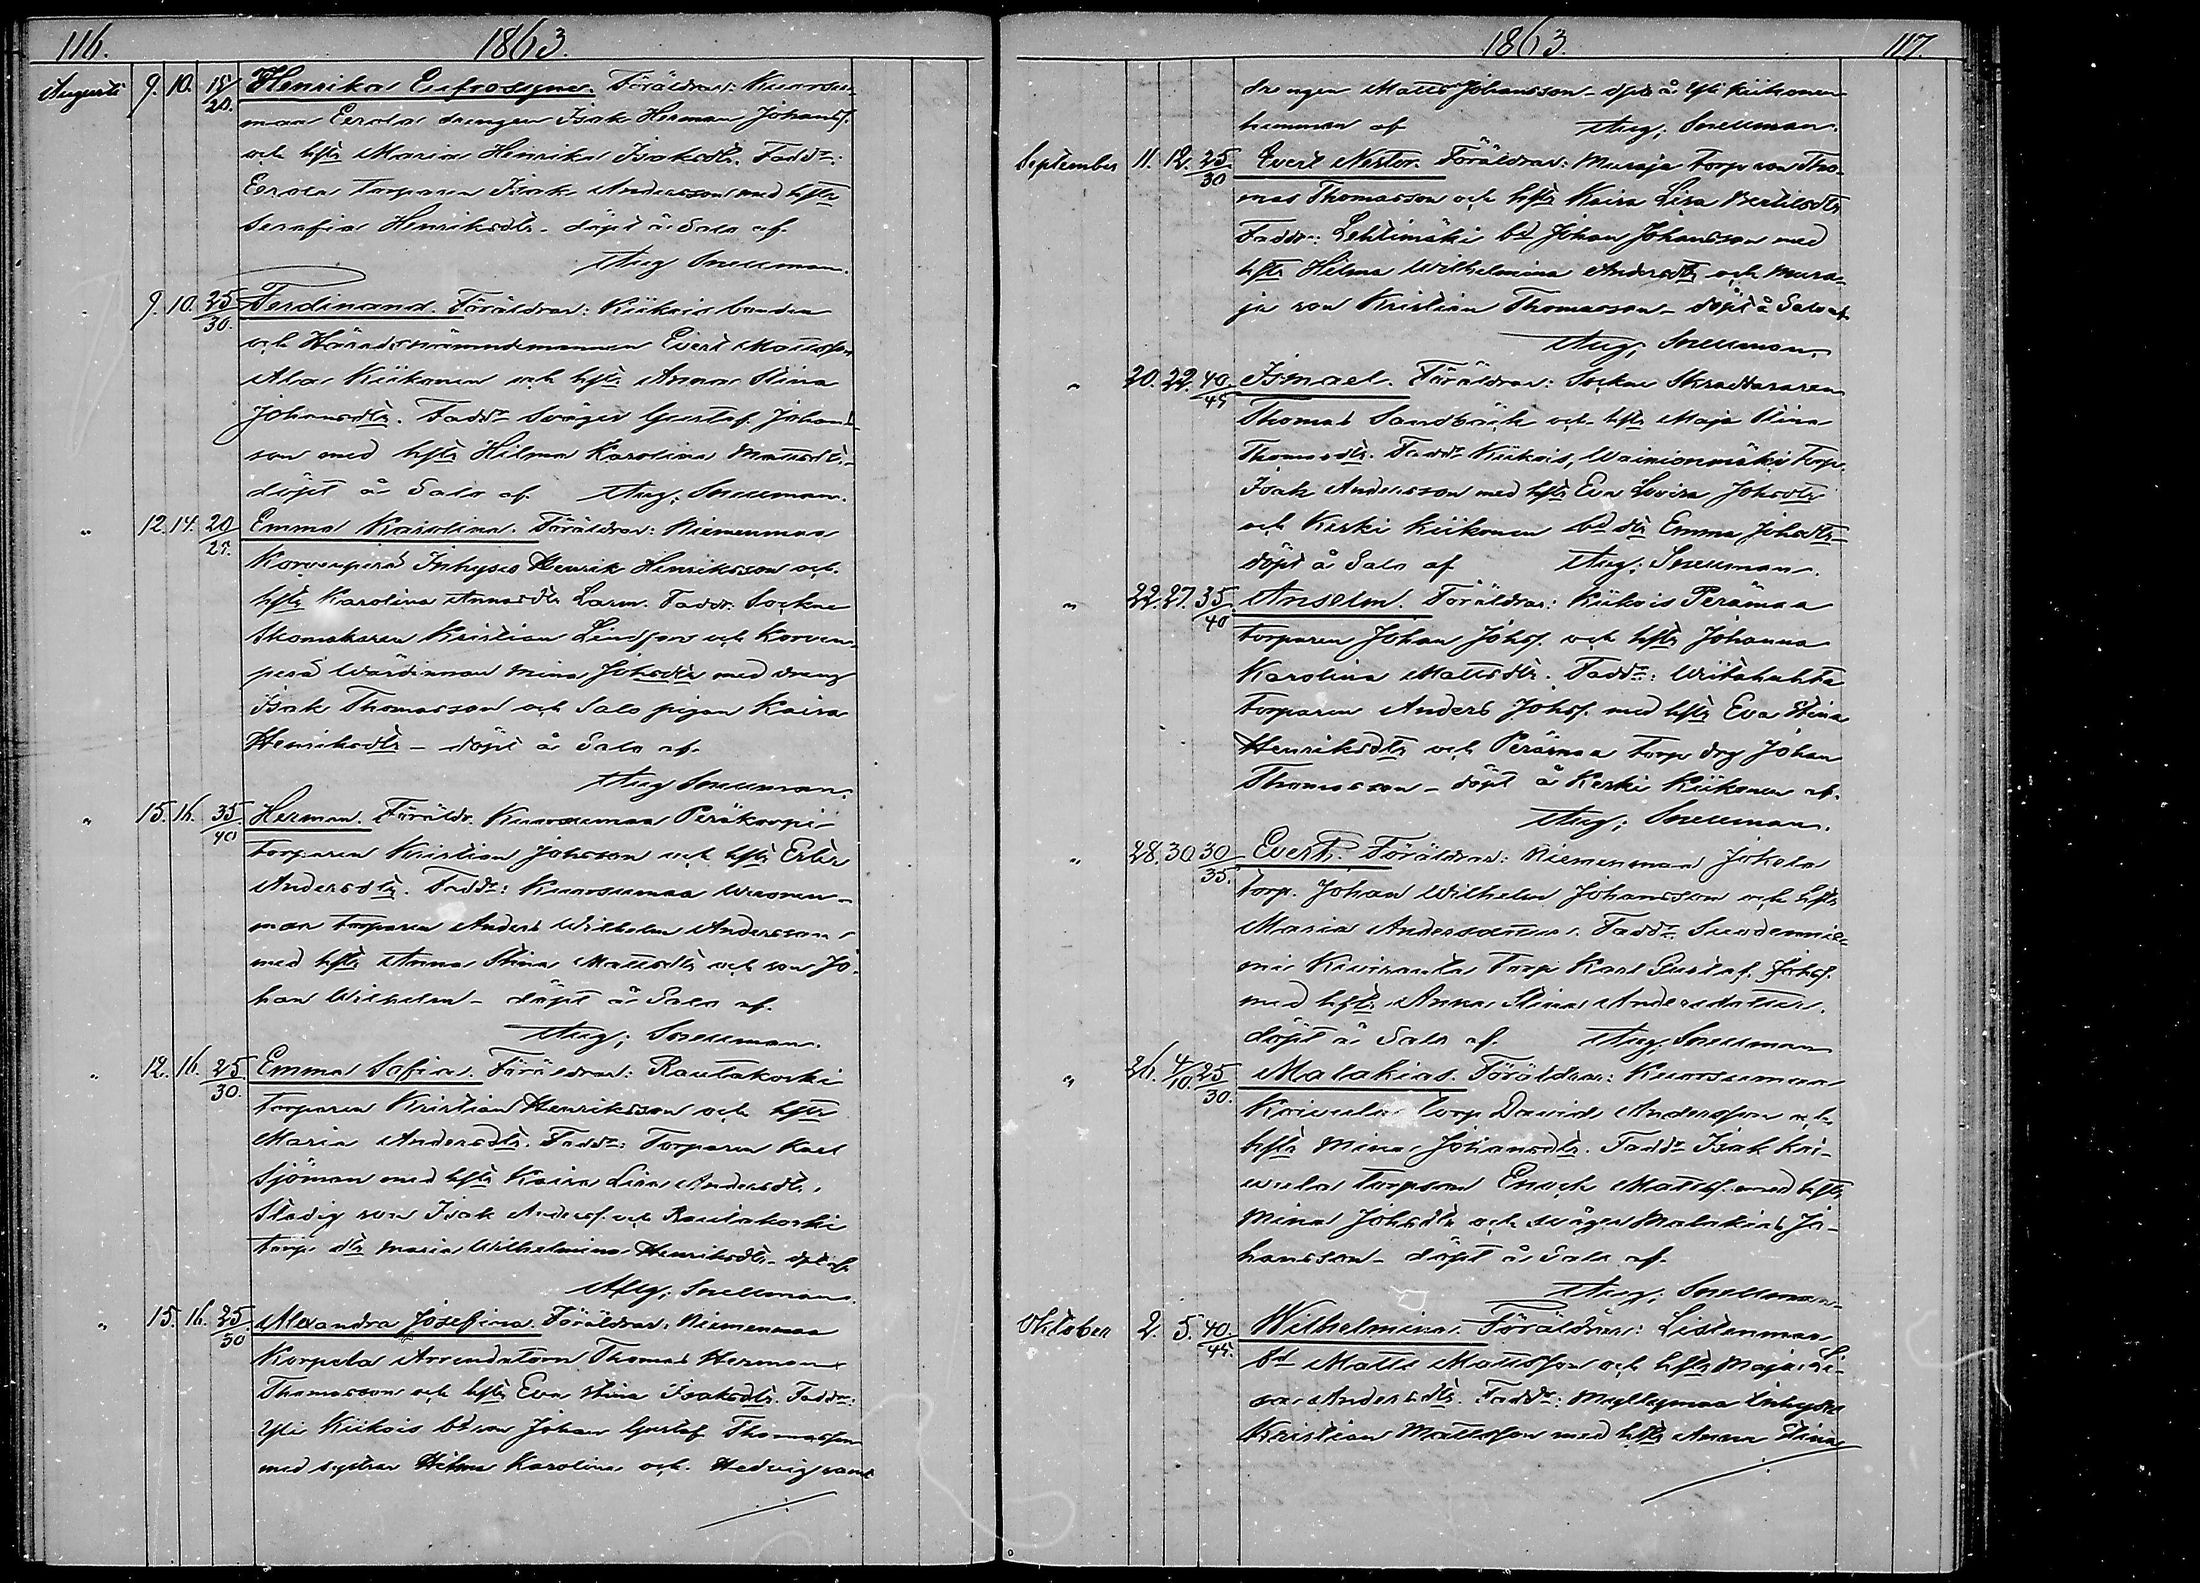 116. 1863.
Augusti 9. 10. 15/20. Henrika Eufrosyne. Föräldrar: Kuorsu-
maa Eerola drengen Isak Herman Johansf.
och hstr Maria Henrika Isaksdtr. Faddr:
Eerola Torparen Isak Andersson med hstr
Serafia Henriksdtr. döpt å Salo af.
Aug Snellman.
" 9. 10. 25/30. Ferdinand. Föräldrar: Kiikois bonden
och Häradsnämndemannen Evert Mattsson
Ala Kiikonen och hstr Anna Stina
Johansdtr. Faddr Svåger Gustaf Johans-
son med hstr Hilma Karolina Mattsdtr.
döpt å Salo af. Aug; Snellman.
" 12. 14. 20/25. Emma Karolina. Föräldrar: Niemenmaa
Korvenperä Inhyses Henrik Henriksson och
hstr Karolina Annasdtr Larm. Faddr: Sockne
Skomakaren Kristian Lindfors och Korven-
perä Värdinnan Mina Johsdtr med dreng
Isak Thomasson och Salo pigan Kaisa
Henriksdtr – döpt å Salo af.
Aug Snellman.
" 15. 16. 35/40 Herman. Föräldr. Kuorsumaa Peräkorpi
torparen Kristian Johsson och hstr Ester
Andersdtr. Faddr: Kuorsumaa Wuoren-
maa torparen Anders Wilhelm Andersson
med hstr Anna Stina Mattsdtr och son Jo-
han Wilhelm – döpt å Salo af.
Aug; Snellman.
" 12. 16. 25/30. Emma Sofia. Föräldrar: Rautakoski
torparen Kristian Henriksson och hstr
Maria Andersdtr. Faddr: Torparen Karl
Sjöman med hstr Kaisa Lisa Andersdtr.
Stadig son Isak Andersf. och Rautakoski
torp. dtr Maria Wilhelmina Henriksdtr. dpt af.
Aug; Snellman.
" 15. 16. 25/30 Alexandra Josefina. Föräldrar: Niemenmaa
Korpela Arrendatorn Thomas Herman
Thomasson och hstr Eva Stina Isaksdtr. Faddr:
Yli Kiikois bd son Johan Gustaf Thomasson
med systrar Hilma Karolina och Hedvig samt
./.
1863. 117.
drengen Matts Johansson – dpt å Yli Kiikonen
hemman af Aug; Snellman.
September 11. 12. 25/30 Evert Nestor. Föräldrar: Muraja torp. son Tho-
mas Thomasson och hstr Kaisa Lisa Bertilsdtr
Faddr: Lehtimäki bd Johan Johansson med
hstr Hilma Wilhelmina Andersdtr och Mura-
ja son Kristian Thomasson – döpt å Salo af
Aug; Snellman.
" 20. 22. 40/45 Ismael. Föräldrar: Sockne Skräddararen
Thomas Sandbäck och hstr Maja Stina
Thomasdtr. Faddr Kiikois, Wainionmäki Torp.
Isak Andersson med hstr Eva Lovisa Johsdtr
och Keski Kiikonen bd dtr Emma Johsdtr
döpt å Salo af Aug; Snellman.
" 22. 27. 35/40 Anselm. Föräldrar: Kiikois Perämaa
torparen Johan Johsf. och hstr Johanna
Karolina Mattsdtr. Faddr: Wiitahuhta
torparen Anders Johsf. med hstr Eva Stina
Henriksdtr och Perämaa Torp. drg Johan
Thomasson – döpt å Keski Kiikonen af.
Aug; Snellman.
" 28. 30 30/35. Evert. Föräldrar: Niemenmaa Jokela
torp. Johan Wilhelm Johansson och hstr
Maria Andersdotter. Faddr. Suodennie-
mi Kiviranta Torp. Karl Gustaf Johsf.
med hstr Anna Stina Andersdotter.
döpt å Salo af. Aug; Snellman
" 26. 4/10. 25/30. Malakias. Föräldrar: Kuorsumaa
Koivula Torp. David Andersson och
hstr Mina Johansdtr. Faddr Isak Koi-
vula torpson Enock Mattsf. med hstr
Mina Johsdtr och svåger Malakias Jo-
hansson – döpt å Salo af.
Aug; Snellman.
Oktober 2. 5. 40/45. Wilhelmina. Föräldrar: Listenmaa
bd Matts Mattsson och hstr Maja Li-
sa Andersdtr. Faddr: Myllymaa Inhyses
Kristian Mattsson med hstr Anna Stina
./.